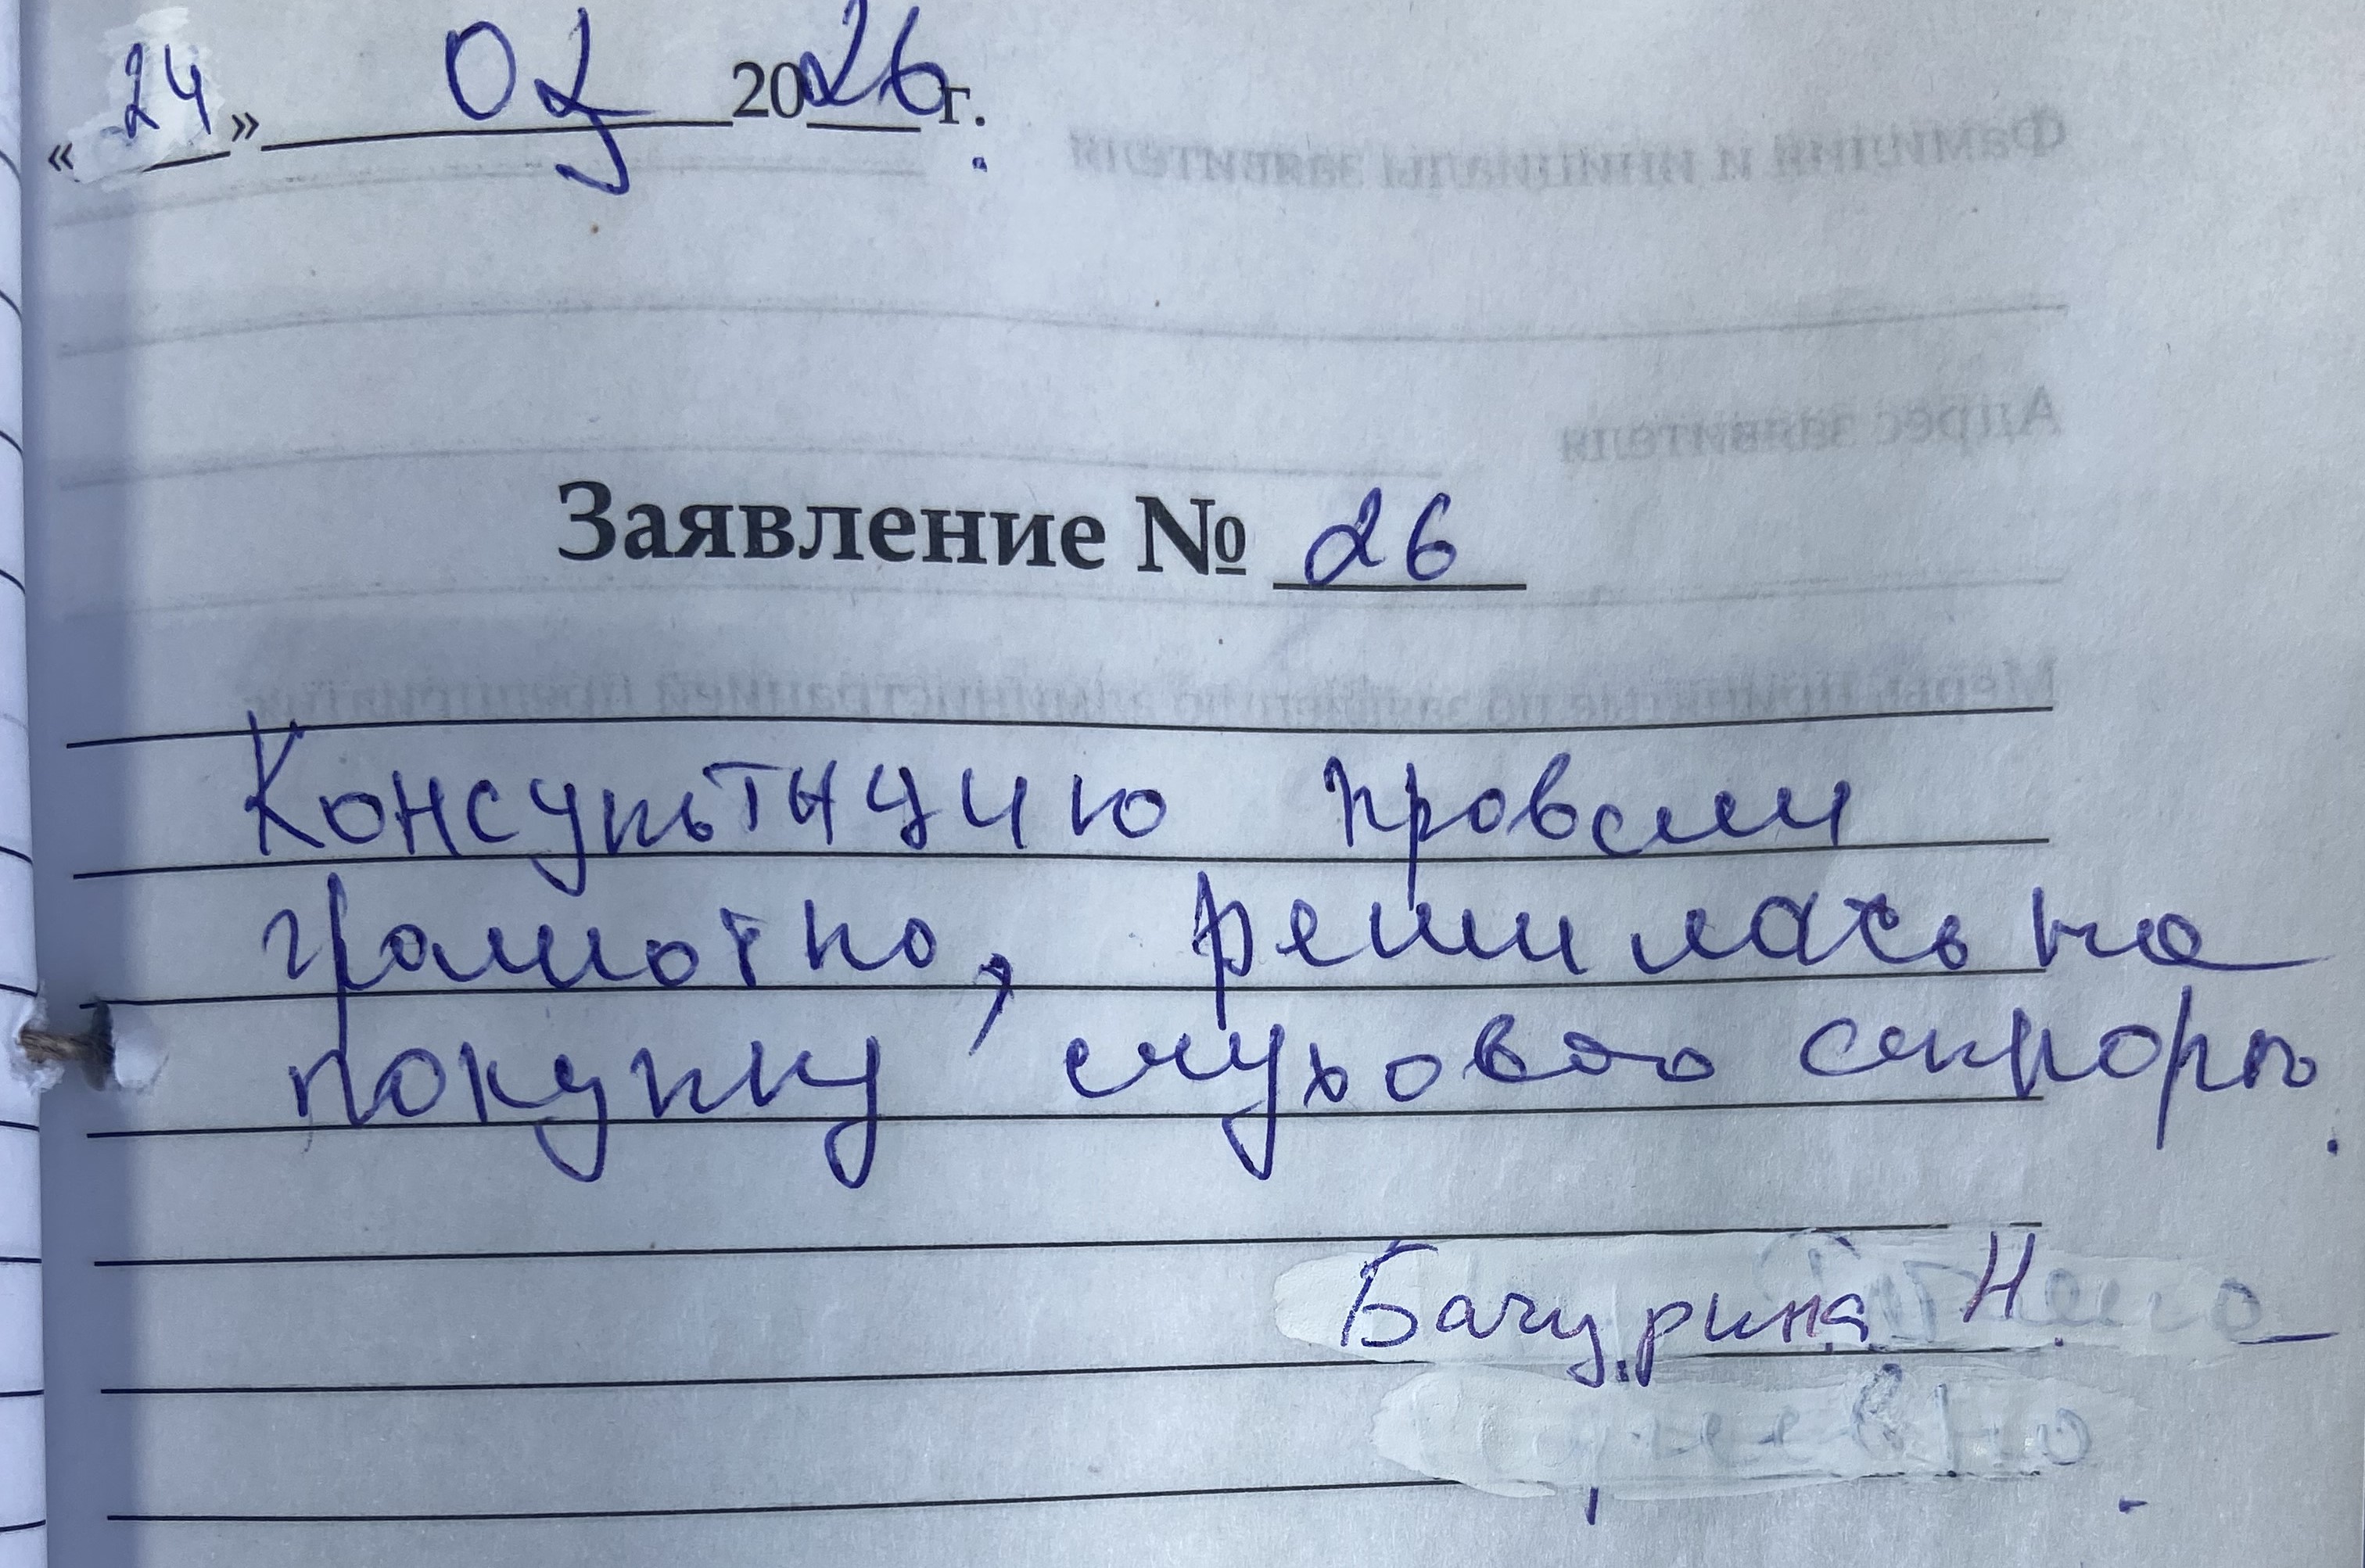 «24» 02 2026 г.
Заявление № 26
Консультацию провели
грамотно, решилась на
покупку слухового
Бачурина Н.